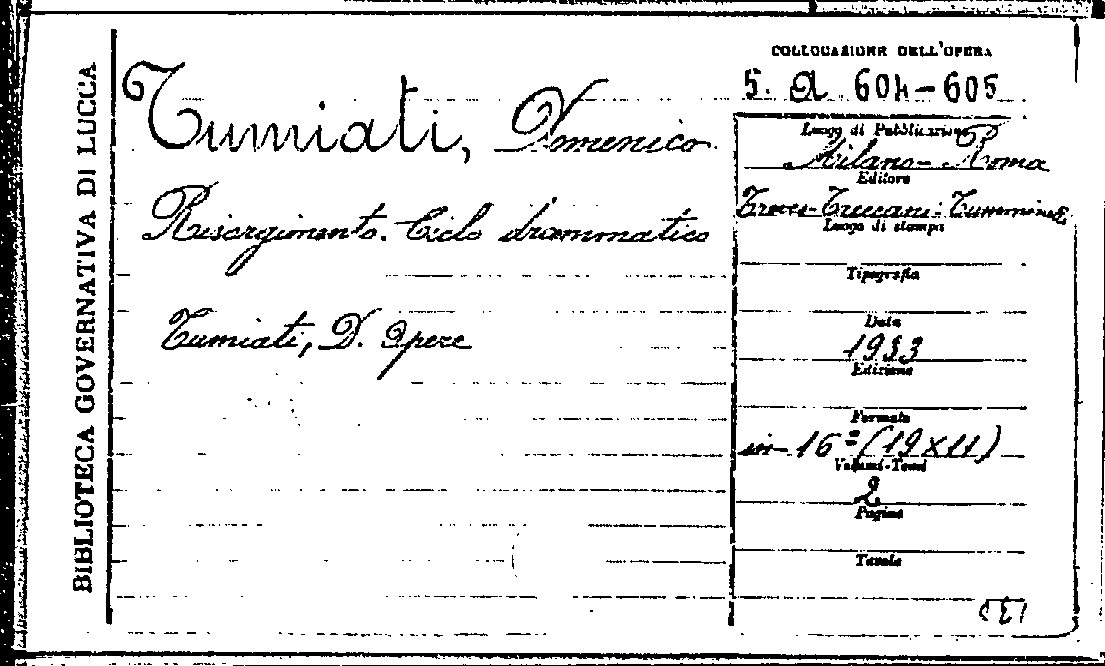 BIBLIOTECA GOVERNATIVA DI LUCCA
Tumiati, Domenico
Risorgimento. Ciclo drammatico
Tumiati, D. Opere
COLLOCAZIONE DELL'OPERA
5. A. 604-605
Luogo di Pubblicazione
Milano-Roma
Editore
Treves-Treccani-Tumminelli
Luogo di stampa
Tipografia
Data
1933
Edizione
Formato
in-16º (19x11)
Volumi-Tomi
2
Pagine
Tavole